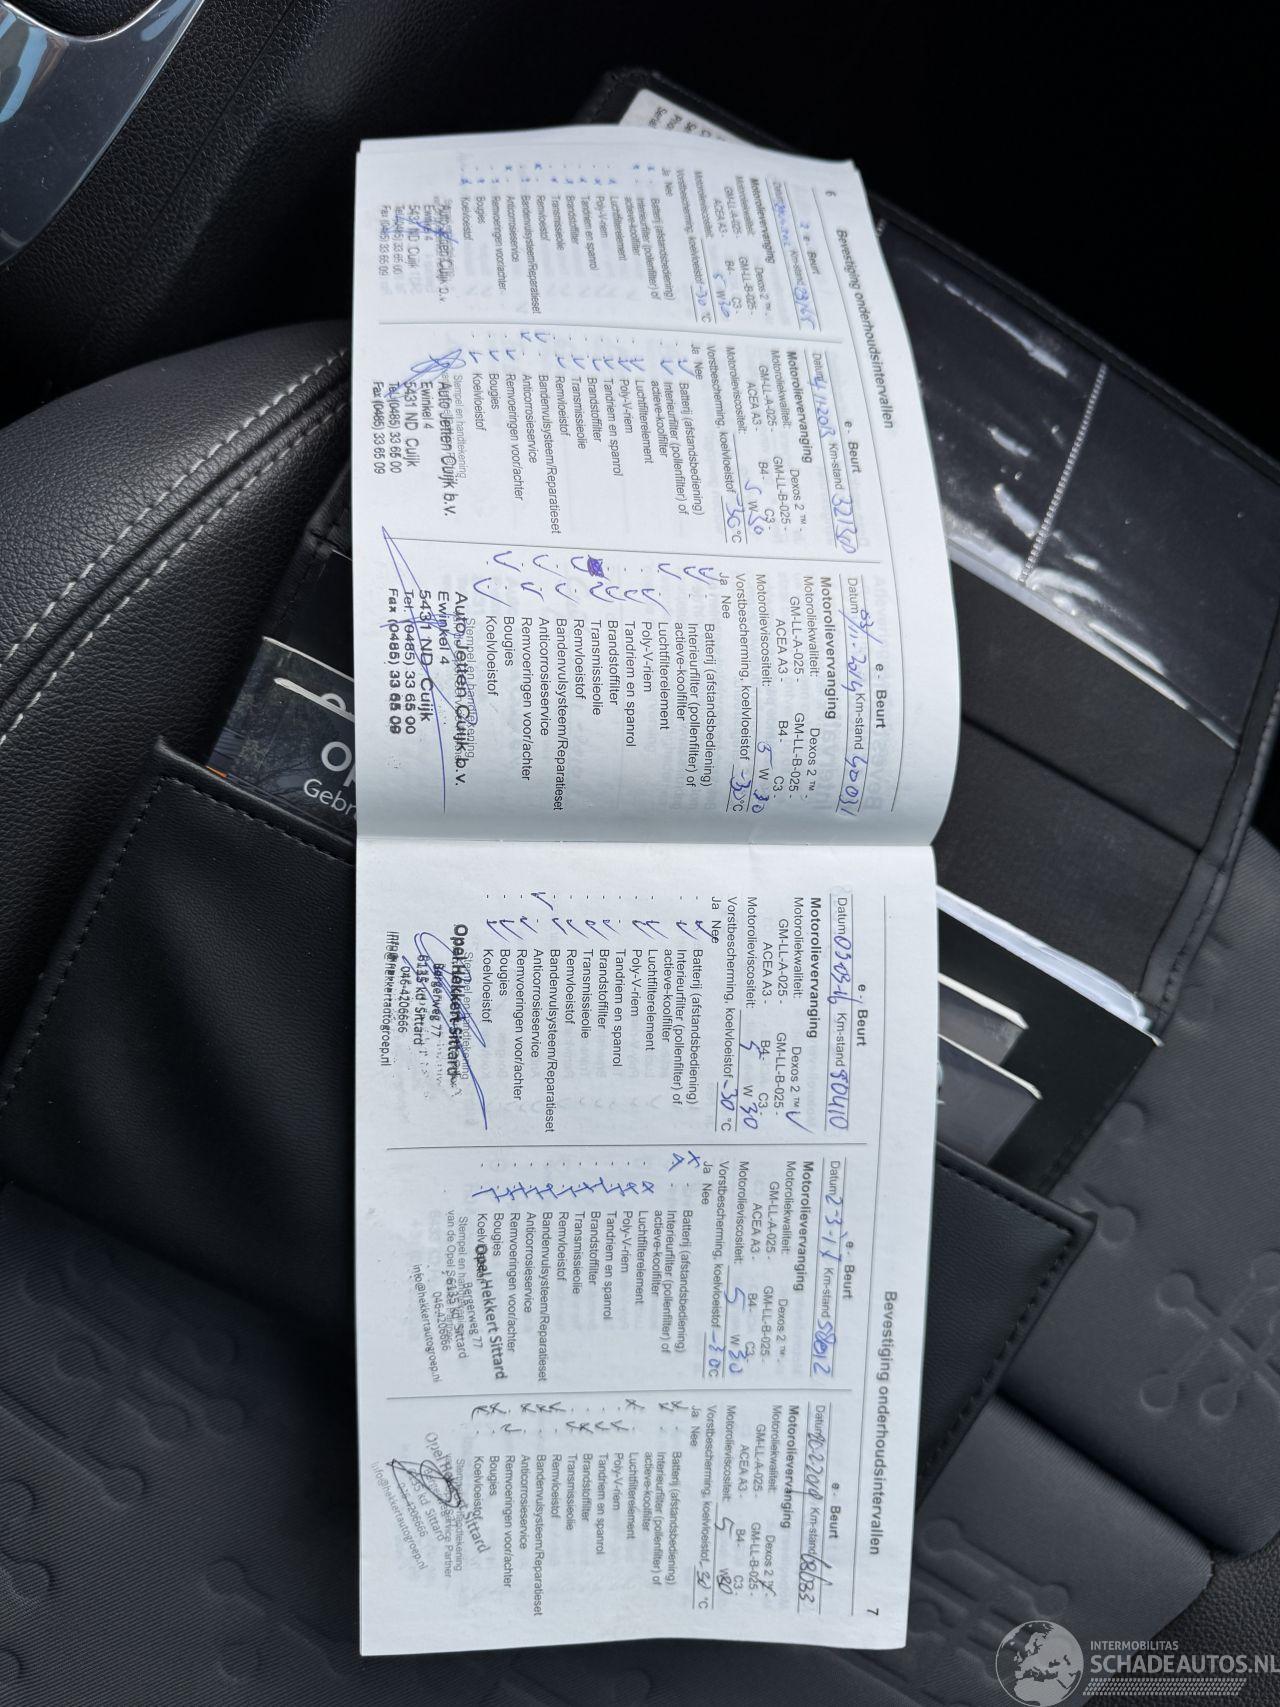 6
Bevestiging onderhoudsintervallen
2 e - Beurt
Km-stand
Motorolievervanging
Motoroliekwaliteit: Dexos 2 ™ -
GM-LL-A-025 - GM-LL-B-025 -
ACEA A3 - B4 - C3 -
Motorolieviscositeit: 5 W 30
Vorstbescherming, koelvloeistof -30 °C
Ja Nee
Batterij (afstandsbediening)
Interieurfilter (pollenfilter) of
actieve-koolfilter
Luchtfilterelement
Poly-V-riem
Tandriem en spanrol
Brandstoffilter
Transmissieolie
Remvloeistof
Bandenvulsysteem/Reparatieset
Anticorrosieservice
Remvoeringen voor/achter
Bougies
Koelvloeistof
Auto Jetten Cuijk b.v.
Ewinkel 4
5431 ND Cuijk
Tel. (0485) 33 65 00
Fax (0485) 33 65 09
e - Beurt
Datum Km-stand
Motorolievervanging
Motoroliekwaliteit: Dexos 2 ™ -
GM-LL-A-025 - GM-LL-B-025 -
ACEA A3 - B4 - C3 -
Motorolieviscositeit: 5 W 30
Vorstbescherming, koelvloeistof -30 °C
Ja Nee
Batterij (afstandsbediening)
Interieurfilter (pollenfilter) of
actieve-koolfilter
Luchtfilterelement
Poly-V-riem
Tandriem en spanrol
Brandstoffilter
Transmissieolie
Remvloeistof
Bandenvulsysteem/Reparatieset
Anticorrosieservice
Remvoeringen voor/achter
Bougies
Koelvloeistof
Stempel en handtekening
Auto Jetten Cuijk b.v.
Ewinkel 4
5431 ND Cuijk
Tel. (0485) 33 65 00
Fax (0485) 33 65 09
e - Beurt
Datum Km-stand
Motorolievervanging
Motoroliekwaliteit: Dexos 2 ™ -
GM-LL-A-025 - GM-LL-B-025 -
ACEA A3 - B4 - C3 -
Motorolieviscositeit: 5 W 30
Vorstbescherming, koelvloeistof -30 °C
Ja Nee
Batterij (afstandsbediening)
Interieurfilter (pollenfilter) of
actieve-koolfilter
Luchtfilterelement
Poly-V-riem
Tandriem en spanrol
Brandstoffilter
Transmissieolie
Remvloeistof
Bandenvulsysteem/Reparatieset
Anticorrosieservice
Remvoeringen voor/achter
Bougies
Koelvloeistof
Stempel en handtekening
Auto Jetten Cuijk b.v.
Ewinkel 4
5431 ND Cuijk
Tel. (0485) 33 65 00
Fax (0485) 33 65 09
Bevestiging onderhoudsintervallen
7
e - Beurt
Datum 03-03-16 Km-stand
Motorolievervanging
Motoroliekwaliteit: Dexos 2 ™
GM-LL-A-025 - GM-LL-B-025 -
ACEA A3 - B4 - C3 -
Motorolieviscositeit: 5 W 30
Vorstbescherming, koelvloeistof -30 °C
Ja Nee
Batterij (afstandsbediening)
Interieurfilter (pollenfilter) of
actieve-koolfilter
Luchtfilterelement
Poly-V-riem
Tandriem en spanrol
Brandstoffilter
Transmissieolie
Remvloeistof
Bandenvulsysteem/Reparatieset
Anticorrosieservice
Remvoeringen voor/achter
Bougies
Koelvloeistof
Stempel en handtekening
Opel Hekkert Sittard
Bergerweg 77
6135 kd. Sittard
046-4206666
info@hekkertautogroep.nl
e - Beurt
Datum 2-3-17 Km-stand 58012
Motorolievervanging
Motoroliekwaliteit: Dexos 2 ™ -
GM-LL-A-025 - GM-LL-B-025 -
ACEA A3 - B4 - C3 -
Motorolieviscositeit: 5 W 30
Vorstbescherming, koelvloeistof -30 °C
Ja Nee
Batterij (afstandsbediening)
Interieurfilter (pollenfilter) of
actieve-koolfilter
Luchtfilterelement
Poly-V-riem
Tandriem en spanrol
Brandstoffilter
Transmissieolie
Remvloeistof
Bandenvulsysteem/Reparatieset
Anticorrosieservice
Remvoeringen voor/achter
Bougies
Koelvloeistof
Stempel en handtekening
van de Opel
Opel Hekkert Sittard
Bergerweg 77
6135 kd. Sittard
046-4206666
info@hekkertautogroep.nl
e - Beurt
Datum Km-stand
Motorolievervanging
Motoroliekwaliteit: Dexos 2 ™
GM-LL-A-025 - GM-LL-B-025 -
ACEA A3 - B4 - C3 -
Motorolieviscositeit: 5 W 30
Vorstbescherming, koelvloeistof -30 °C
Ja Nee
Batterij (afstandsbediening)
Interieurfilter (pollenfilter) of
actieve-koolfilter
Luchtfilterelement
Poly-V-riem
Tandriem en spanrol
Brandstoffilter
Transmissieolie
Remvloeistof
Bandenvulsysteem/Reparatieset
Anticorrosieservice
Remvoeringen voor/achter
Bougies
Koelvloeistof
Stempel en handtekening
Service Partner
Sittard
kd. Sittard
info@hekkertautogroep.nl
Op
Gebr
INTERMOBILITAS
SCHADEAUTOS.NL